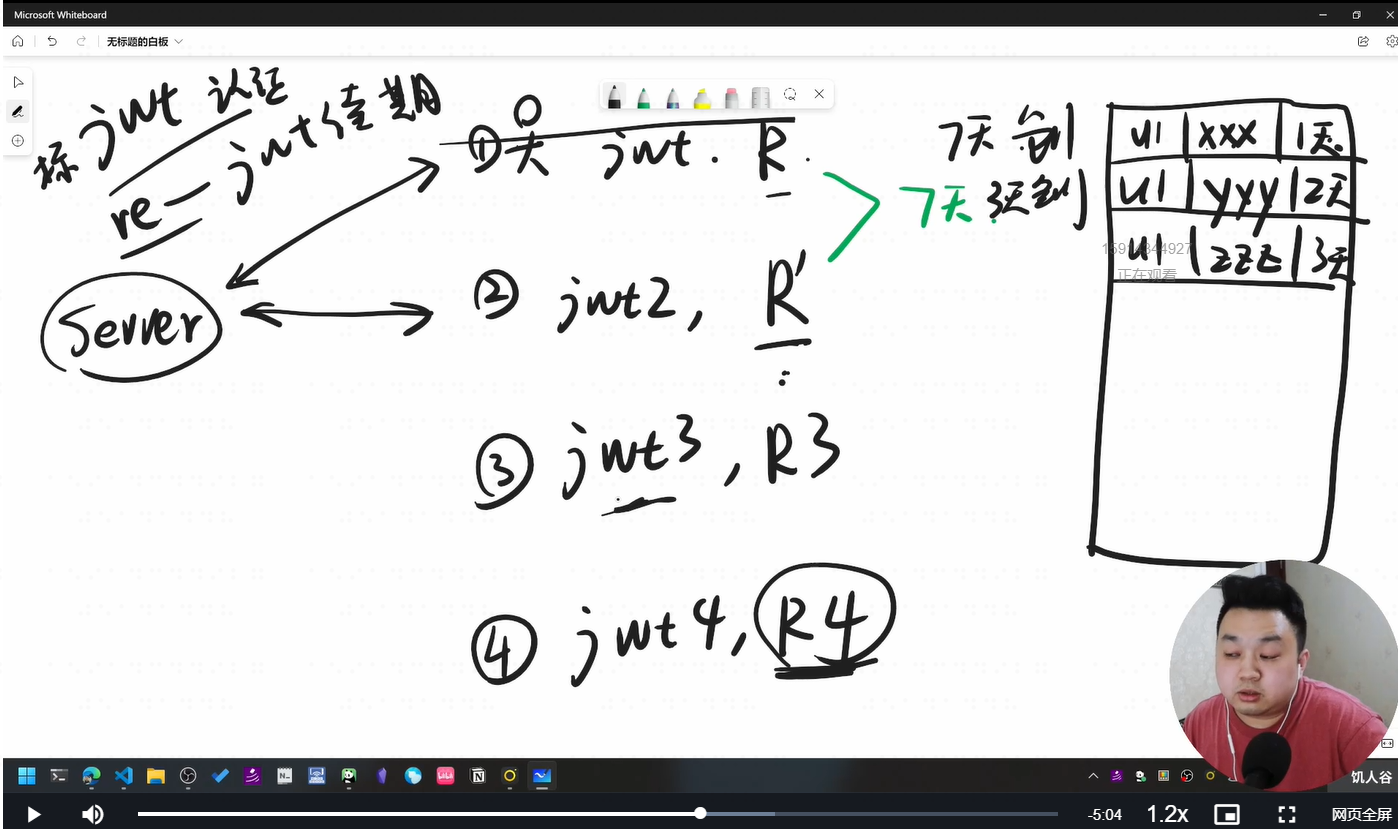 Microsoft Whiteboard
无标题的白板
标 jwt 认证
re= jwt 续期
Server
① 0天 jwt. R.
② jwt2, R'
③ jwt3, R3
④ jwt4, R4
7天
7天
3天
u1 xxx 1天
u1 yxy 2天
u1 zzz 3天
正在观看
饥人谷
-5:04
1.2x
网页全屏